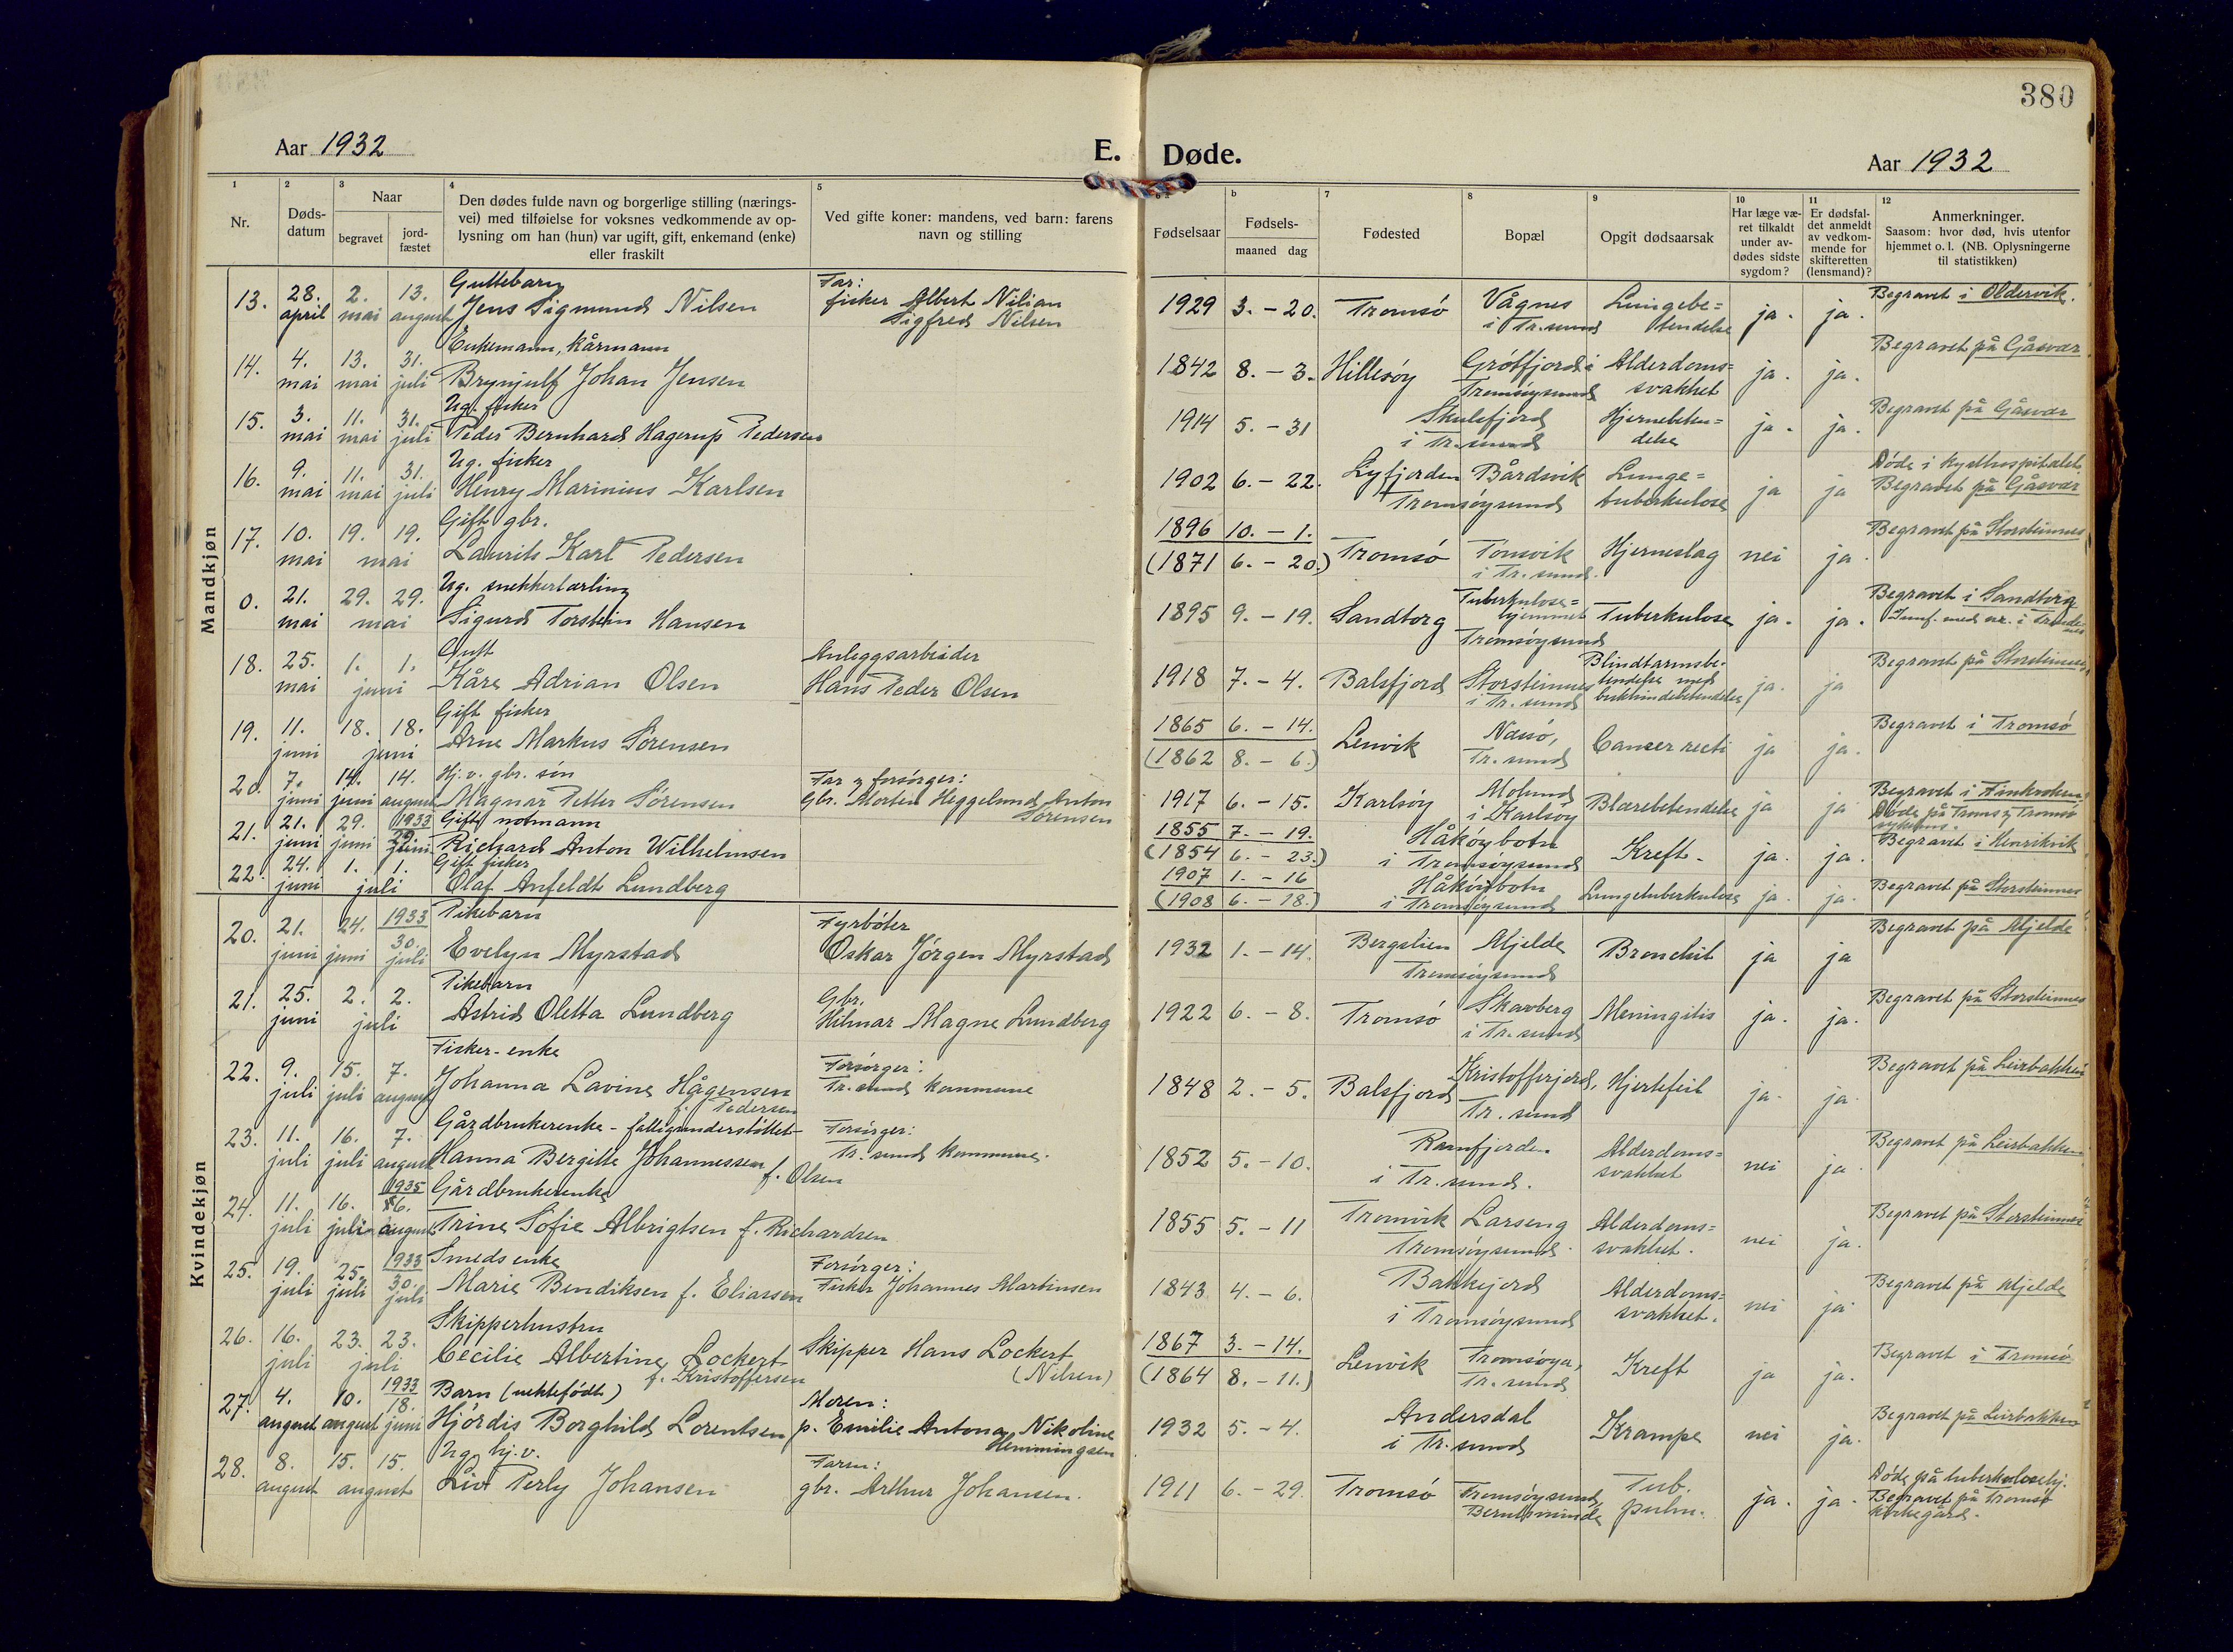 380
Aar 1932
E. Døde.
Aar 1932
1 2 3 4 5 b 7 8 9 10 11 12
Nr.
Døds-
datum
Naar
begravet
jord-
fæstet
Den dødes fulde navn og borgerlige stilling (nærings-
vei) med tilføielse for voksnes vedkommende av op-
lysning om han (hun) var ugift, gift, enkemand (enke)
eller fraskilt
Ved gifte koner: mandens, ved barn: farens
navn og stilling
Fødselsaar
Fødsels-
maaned dag
Fødested
Bopæl
Opgit dødsaarsak
Har læge væ-
ret tilkaldt
under av-
dødes sidste
sygdom?
Er dødsfal-
det anmeldt
av vedkom-
mende for
skifteretten
(lensmand)?
Anmerkninger.
Saasom: hvor død, hvis utenfor
hjemmet o. l. (NB. Oplysningerne
til statistikken)
Mandkjøn
13. 28. april 2. mai 13. august Guttebarn
Jens Sigmund Nilsen
Far:
fisker Albert Nilian
Sigfred Nilsen
1929 3. - 20. Tromsö Vågnes i Tr.sund Lungebetendelse ja. ja. Begravet i Oldervik.
14. 4. mai 13. mai 31. juli Enkemann, kårmann
Brynjulf Johan Jensen
1842 8. - 3. Hillesöy Grötfjord i Tromsöysund Alderdoms=svakhet ja. ja. Begravet på Gåsvær
15. 3. mai 11. mai 31. juli Ug. fisker
Peder Bernhard Hagerup Pedersen
1914 5. - 31 Skulsfjord i Tr.sund Hjernebeten=delse ja. ja. Begravet på Gåsvær
16. 9. mai 11. mai 31. juli Ug. fisker
Henry Marinius Karlsen
1902 6. - 22. Lyfjorden Bårdsvik Tromsöysund Lunge=tuberkulose ja ja Döde i
Begravet på Gåsvær
17. 10. mai 19. 19. mai Gift gbr.
Laurits Karl Pedersen
1896 10. - 1.
(1871 6. - 20.) Tromsö Tönsvik i Tr.sund. Hjerneslag nei ja. Begravet på Storsteinnes
0. 21. mai 29. 29. mai Ug. snekkerlærling
Sigurd Torstein Hansen
1895 9. - 19. Sandtorg Tuberkulose=hjemmet Tromsöysund Tuberkulose ja. ja. Begravet i Sandtorg
18. 25. mai 1. 1. juni Gutt
Kåre Adrian Olsen
Anleggsarbeider
Hans Peder Olsen
1918 7. - 4. Balsfjord Storsteinnes i Tr. sund Blindtarmsbe-tendelse med bukhindebetendelse ja. ja Begravet på Storsteinnes
19. 11. juni 18. 18. juni Gift fisker
Arne Markus Sörensen
1865 6. - 14.
(1862 8. - 6.) Lenvik Tr. sund Cancer recti ja ja. Begravet i Tromsö
20. 7. juni 14. juni 14. august Hj. v. gbr. sön
Magnar Petter Sörensen
Far & forsörger:
Gbr. Morten Heggelund Anton
Sörensen
1917 6. - 15. Karlsöy Molund i Karlsöy Blærebetendelse ja ja Begravet i Finkroken
Döde på Troms & Tromsö sykehus.
21. 21. juni 29. juni 1933 juni Gift notmann
Richard Anton Wilhelmsen
1855 7. - 19.
(1854 6. - 23.) Håköybotn i Tromsöysund Kreft. ja. ja. Begravet i Henrikvik
22. 24. juni 1. 1. juli Gift fisker
Olaf Anfeldt Lundberg
1907 1. - 16
(1908 6. - 18.) Håköybotn i Tromsöysund Lungetuberkulose ja. ja. Begravet på Storsteinnes
Kvindekjøn
20. 21. juni 24. juni 1933 30. juli Pikebarn
Evelyn Myrstad
Fyrböter
Oskar Jörgen Myrstad
1932 1. - 14. Bergslien Mjelde Tromsöysund Bronchit ja ja Begravet på Mjelde
21. 25. juni 2. 2. juli Pikebarn
Astrid Oletta Lundberg
Gbr.
Hilmar Magne Lundberg
1922 6. - 8. Tromsö Skavberg i Tr. sund Meningitis ja. ja. Begravet på Storsteinnes
22. 9. juli 15. juli 7. august Fisker-enke
Johanna Lavine Hågensen
f. Pedersen
Forsörger:
Tr. sund kommune
1848 2. - 5. Balsfjord Kristofferjord, Tr. sund Hjertefeil ja. ja. Begravet på Leirbakken
23. 11. juli 16. juli 7. august Gårdbrukerenke - fattigunderstöttet
Hanna Bergitte Johannessen
f. Olsen
Forsörger:
Tr. sund kommune.
1852 5. - 10. Ramfjorden i Tr. sund. Alderdoms=svakhet nei ja. Begravet på Leirbakken
24. 11. juli 16. juli 1935 august Gårdbrukerenke
Trine Sofie Albrigtsen f. Richardsen
1855 5. - 11 Tromvik Larseng Tromsöysund. Alderdoms=svakhet. nei ja. Begravet på Storsteinnes
25. 19. juli 25. juli 1933 30. juli Smedsenke
Marie Bendiksen f. Eliassen
Forsörger:
Fisker Johannes Martinsen
1843 4. - 6. Bakkejord i Tromsöysund Alderdoms=svakhet. nei ja. Begravet på Mjelde
26. 16. juli 23. 23. juli Skipperhustru
Cecilie Albertine Lockert
f. Kristoffersen
Skipper Hans Lockert
(Nilsen)
1867 3. - 14.
(1864 8. - 11.) Lenvik Tromsöya, Tr. sund Kreft ja ja. Begravet i Tromsö
27. 4. august 10. august 1933 18. juni Barn (uektefödt)
Hjördis Borghild Lorentsen
Moren:
p. Emilie Antona Nikoline
Hemmingsen
1932 5. - 4. Andersdal i Tr. sund Krampe nei ja. Begravet på Leirbakken
28. 8. august 15. 15. august Ug. hj. v.
Liv Perly Johansen
Faren:
gbr. Arthur Johansen.
1911 6. - 29. Tromsö Tromsöysund, Tub. pulm. ja. ja. Döde på tuberkulosehj.
Begravet på Tromsö
kirkegård.